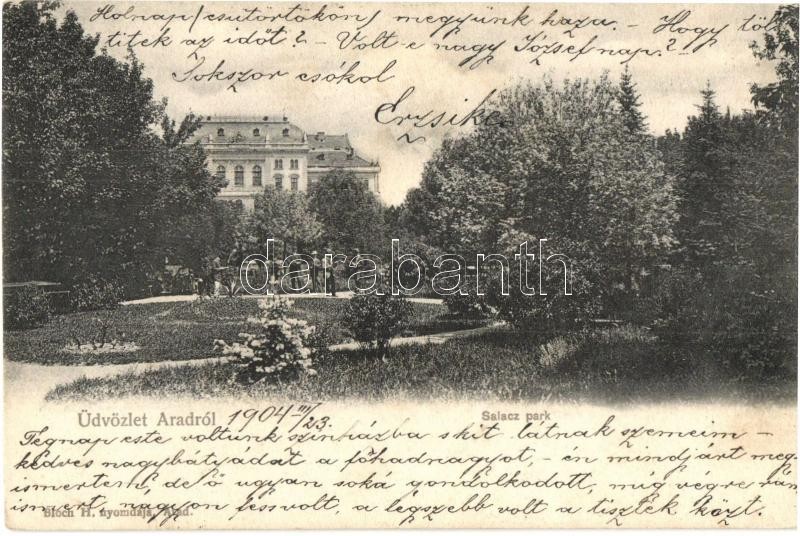 Holnap (csütörtökön) megyünk haza. - Hogy töl-
titek az időt? - Volt-e nagy József nap? -
Sokszor csókol
Erzsike.
darabanth
Üdvözlet Aradról 1904 III/23.
Salacz park
Tegnap este voltunk színházba s kit látnak szemeim -
kedves nagybátyádat a főhadnagyot, - én mindjárt meg-
ismertem, de ő ugyan soká gondólkodott, míg végre rám
ismert, nagyon fess volt, a légszebb volt a tisztek közt.
Bloch H. nyomdája, Arad.